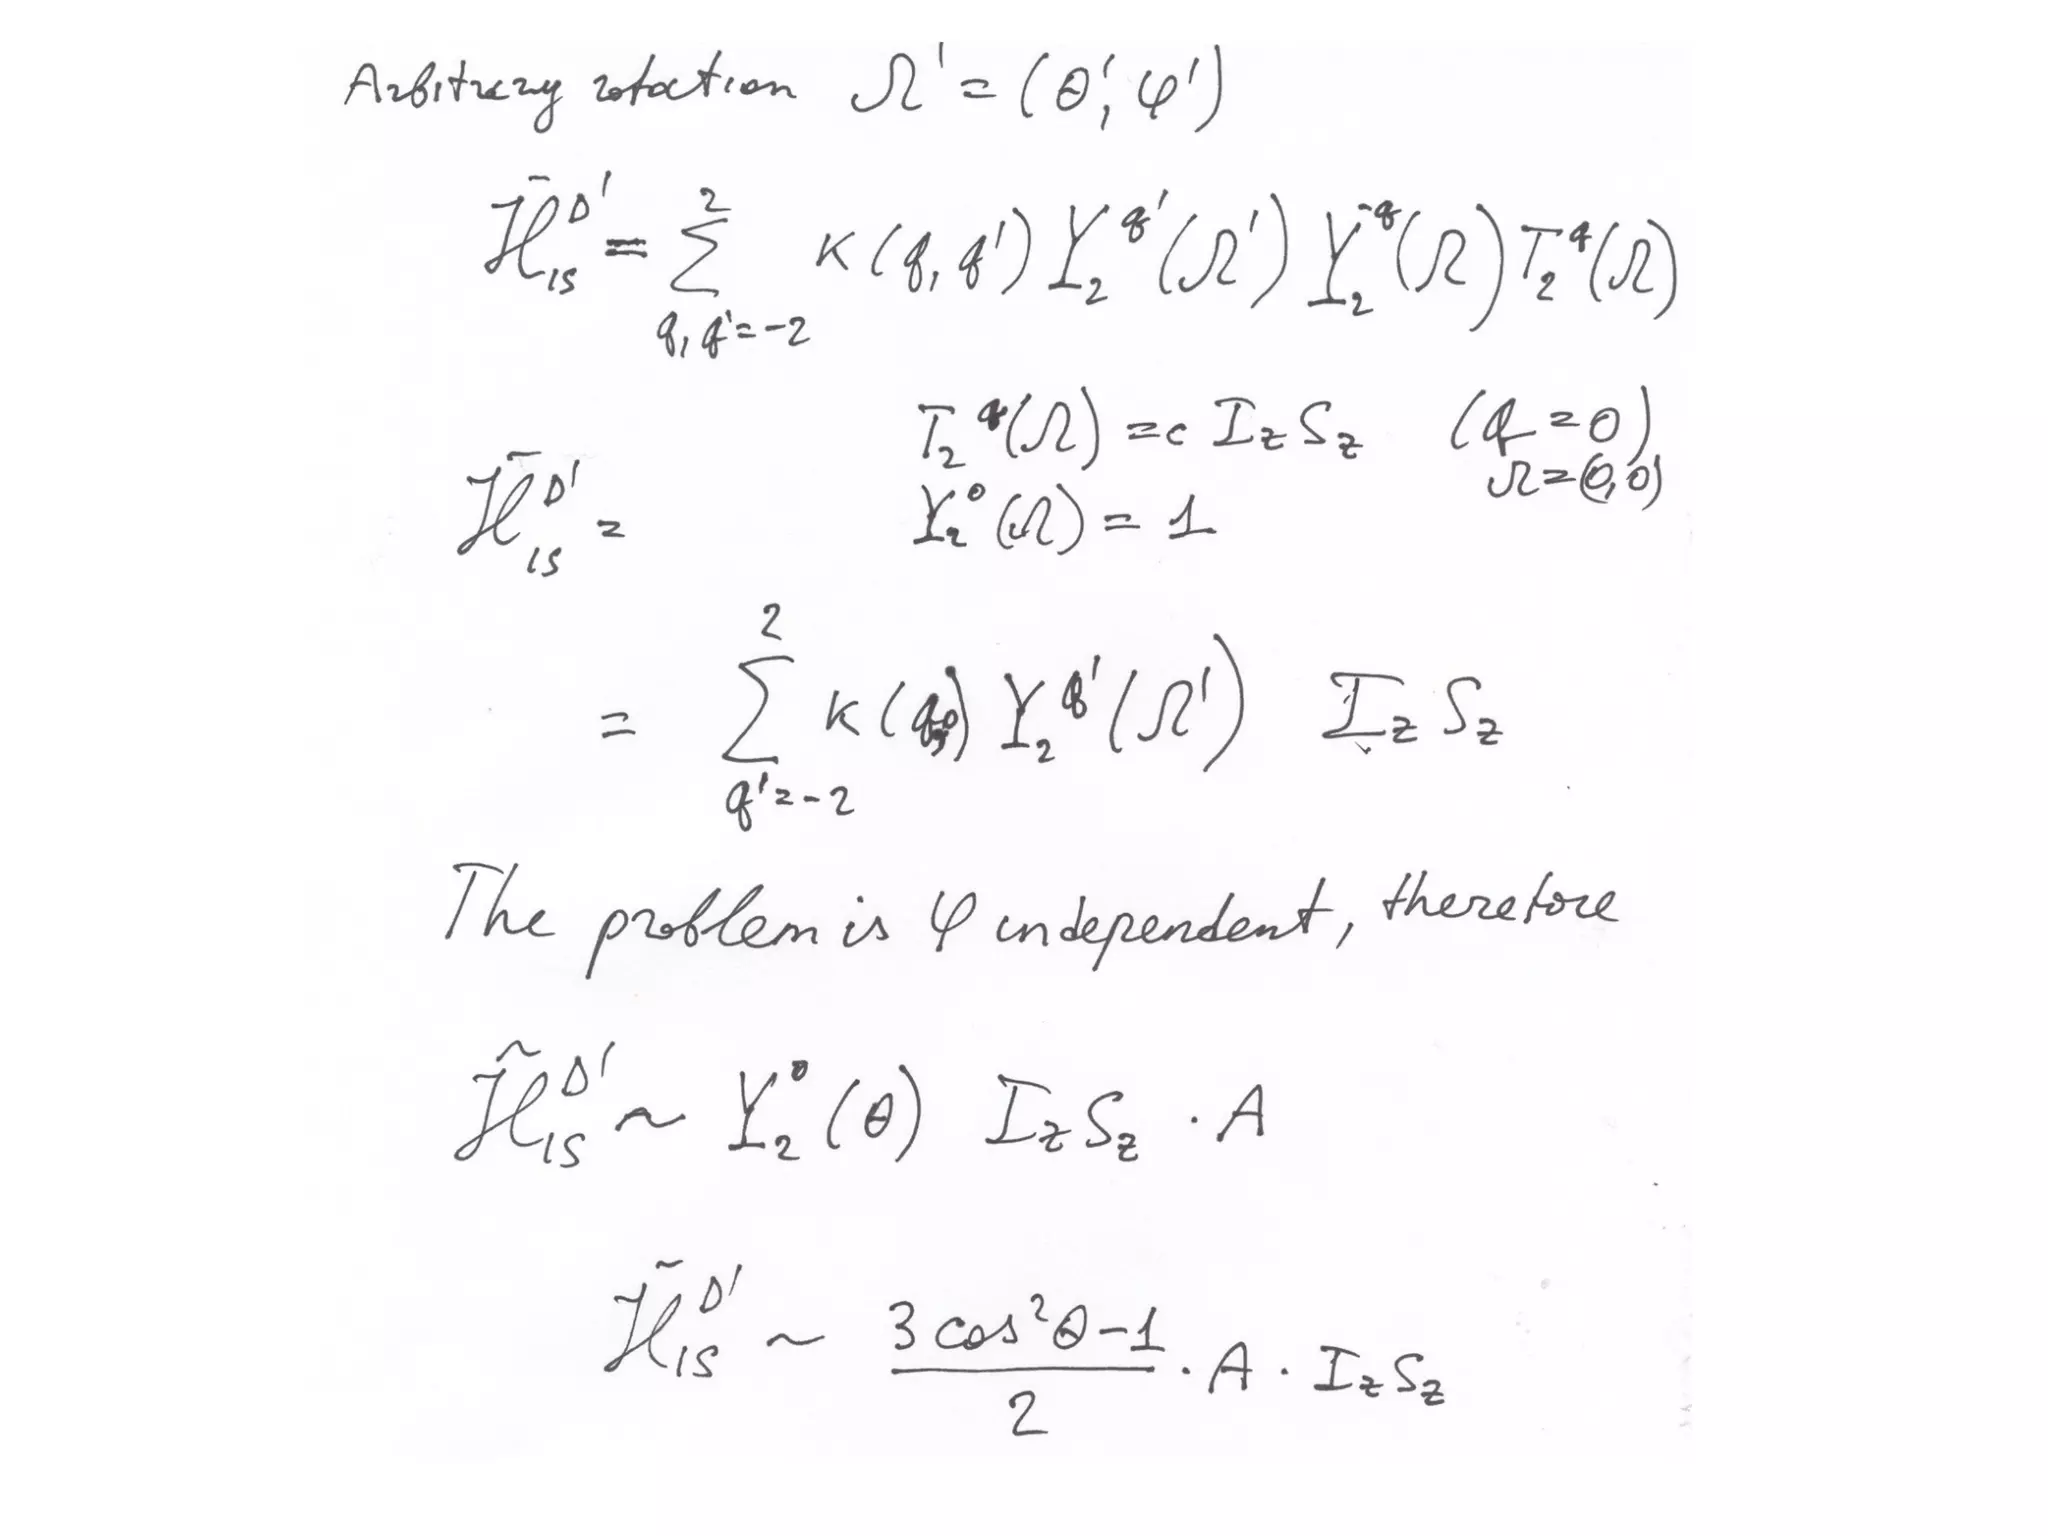 Arbitrary rotation Ω' = (θ', φ')
H̄_IS^D' = Σ_{q,q'=-2}^{2} K(q,q') Y_2^{q'}(Ω') Y_2^{-q}(Ω) T_2^q(Ω)
T_2^q(Ω) = c I_z S_z (q = 0)
Ω=(0,0)
H̄_IS^D' = Y_2^0(Ω) = 1
= Σ_{q'=-2}^{2} K(q,0) Y_2^{q'}(Ω') I_z S_z
The problem is φ independent, therefore
H̃_IS^D' ~ Y_2^0(θ) I_z S_z · A
H̃_IS^D' ~ (3cos²θ-1)/2 · A · I_z S_z